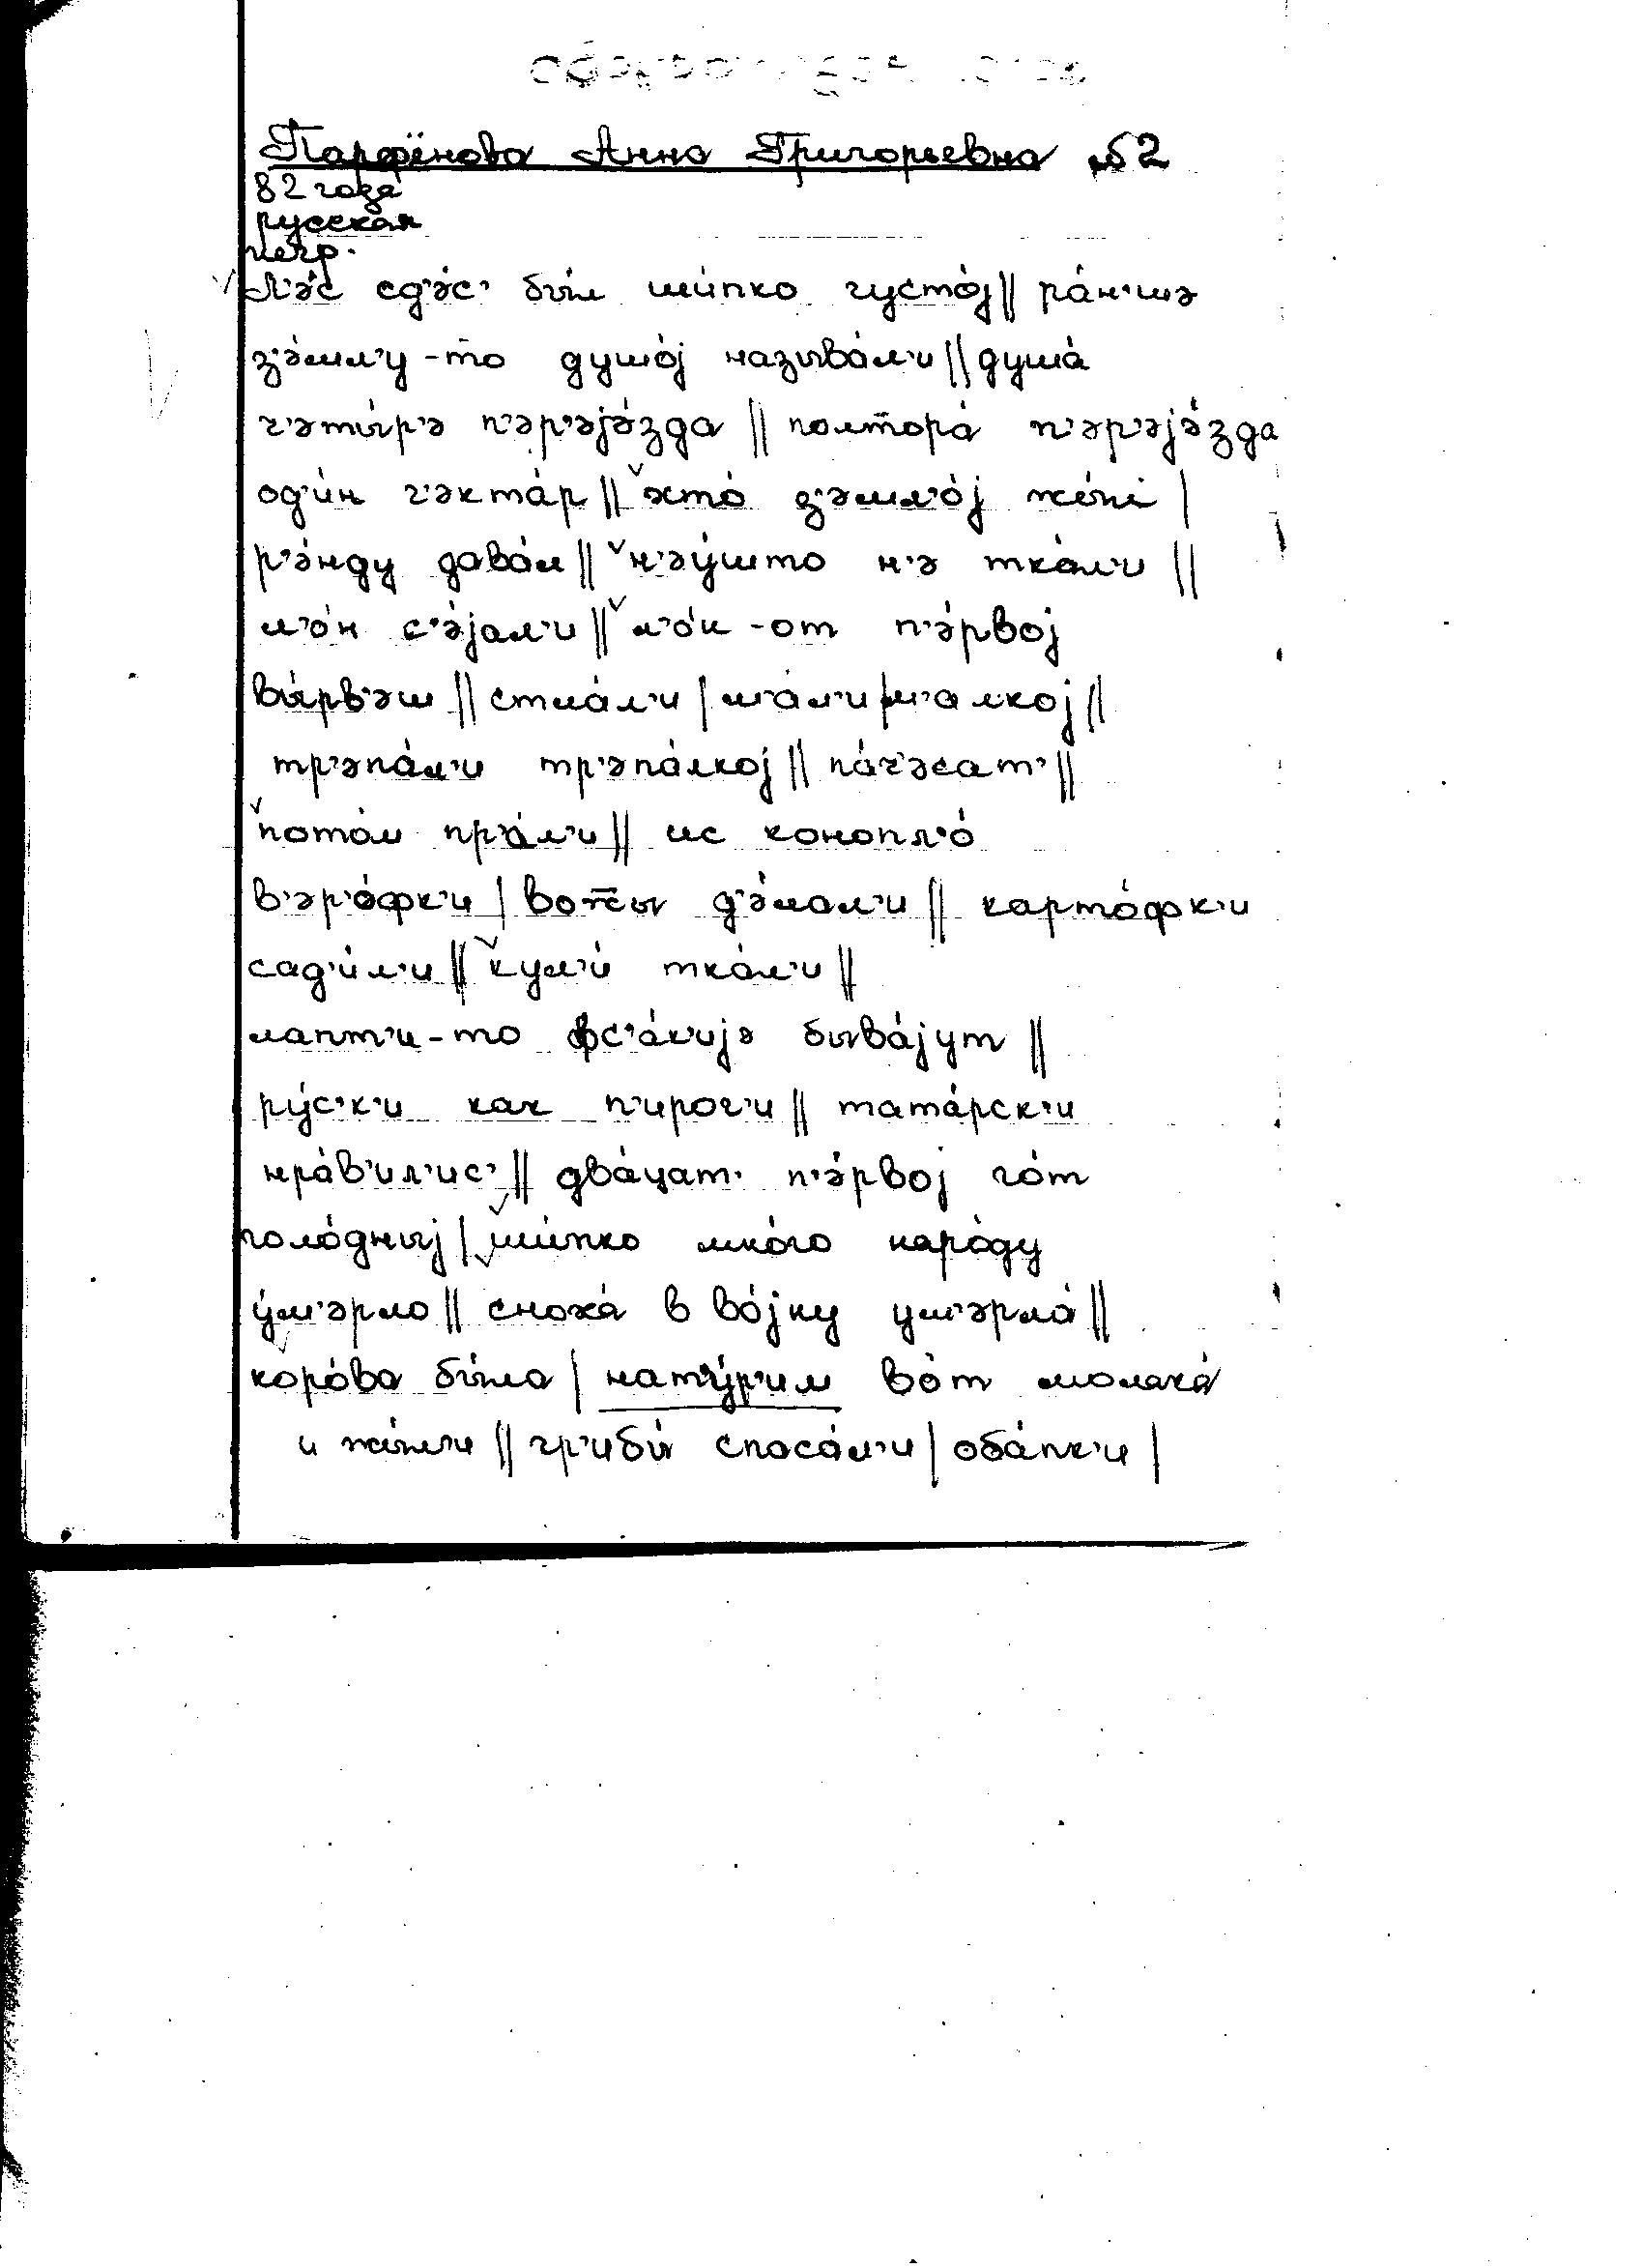 Парфёнова Анна Григорьевна №2
82 года
русская
негр.
Л'э́с сд'э́с' бы́л ши́пко густо́j || ра́н'шэ
з'э́мл'у-то душо́j называ́л'и || душа́
ч'эты́р'э п'эр'эjэ́зда || полтора́ п'эр'эjэ́зда
од'и́н г'экта́р || хто́ з'эмл'о́j жы́л |
р'э́нду дава́л || н'эу́што н'э тка́л'и ||
л'о́н с'э́jал'и || л'о́н-от п'э́рвоj
вы́рв'эш || стла́л'и | м'а́л'и м'алкоj ||
тр'эпа́л'и тр'эпа́лкоj || па́ч'эсат' ||
пото́м пр'а́л'и || ис конопл'о́
в'эр'о́фк'и | вотсы д'э́лал'и || карто́фк'и
сад'и́л'и || кул'и́ тка́л'и ||
лапт'и-то фс'а́к'иjэ быва́jут ||
ру́с'к'и как п'ирог'и || тата́рск'и
нра́в'ил'ис' || два́цат' п'э́рвоj го́т
голо́дныj | ши́пко мно́го наро́ду
у́м'эрло || сноха́ в во́jну ум'эрла́ ||
коро́ва бы́ла | нату́р'им во́т молака́
и жы́л'и || гр'ибы́ спаса́л'и | оба́пк'и |